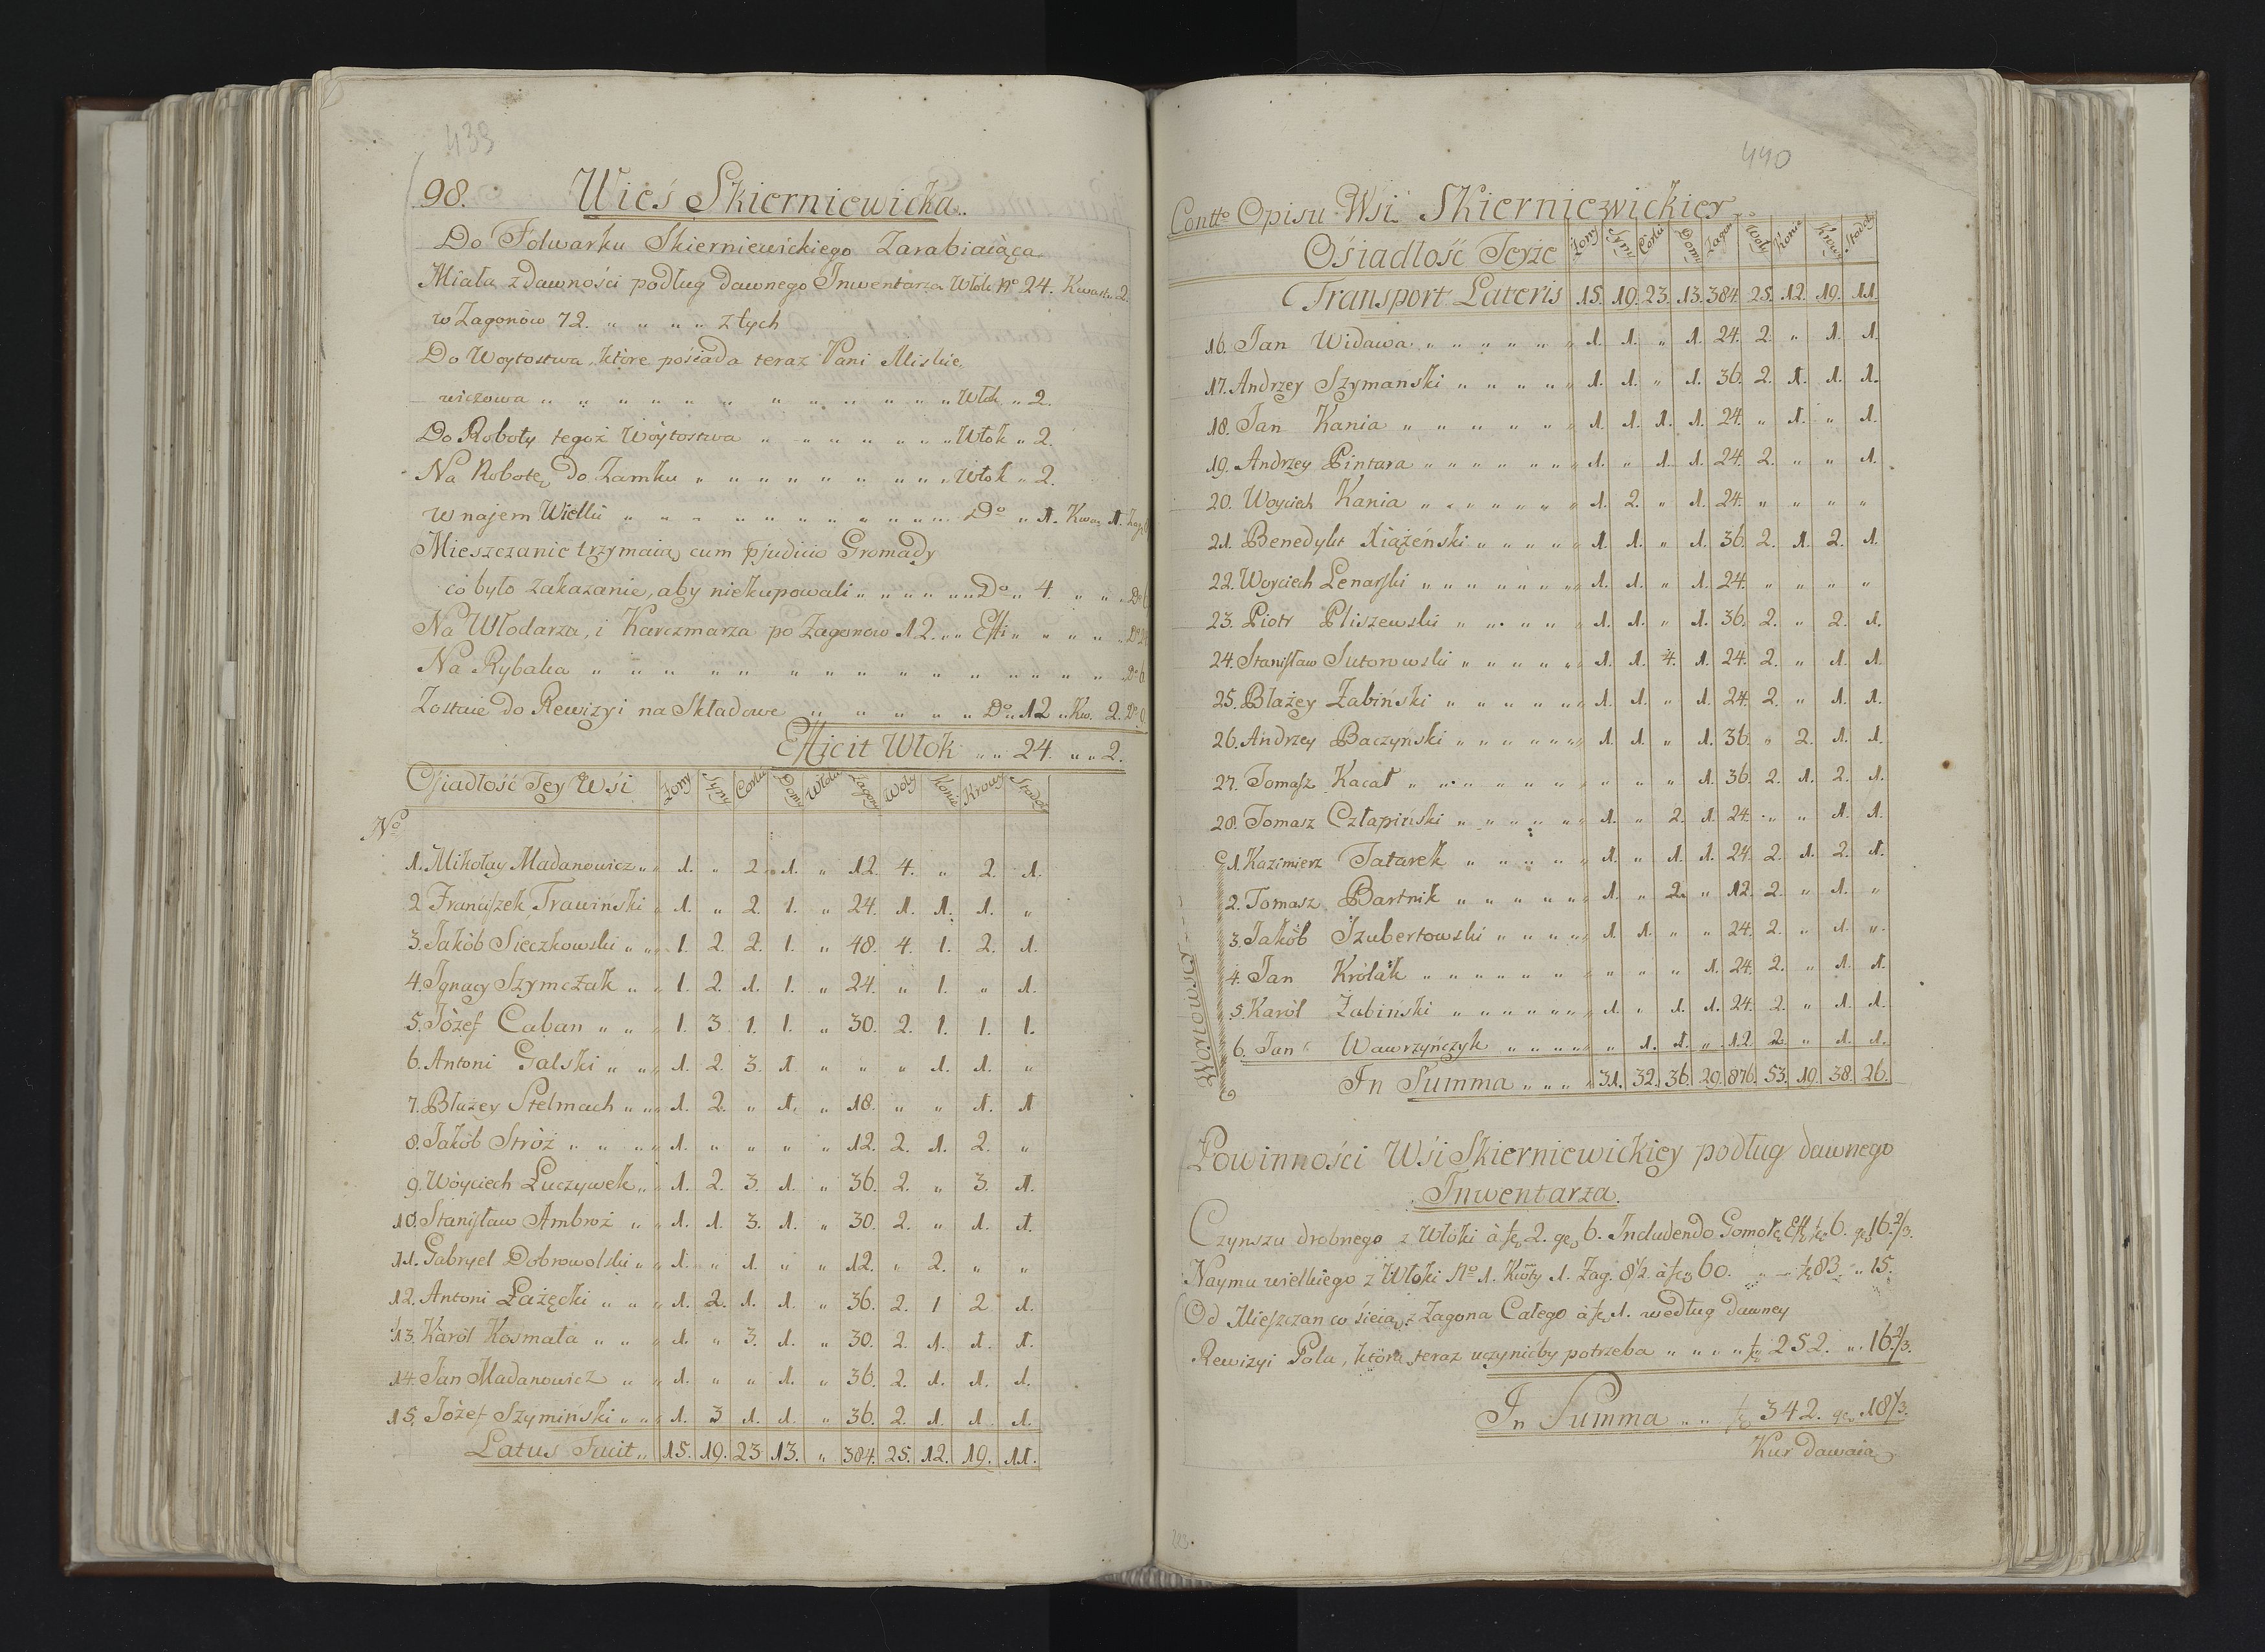 439
98. Wieś Skierniewicka.
Do Folwarku Skierniewickiego Zarabiaiąca.
Miała z dawności podług dawnego Inwentarza Włók No 24. Kwart. 2.
w Zagonów 72. " " " " z tych
Do Woytostwa, które pośiada teraz Pani Miskie,
wiczowa " " " " " " " " " " " " Włók " 2.
Do Roboty tegoż Woytostwa " " " " " " " Włok " 2.
Na Robotę do Zamku " " " " " " " " " Włok " 2.
W najem Wielki " " " " " " " " " " Do " 1. Kwar. 1. Zag.
Mieszczanie trzymaią cum pjudicio Gromady
co było zakazanie, aby niekupowali " " " " " " Do " 4. " " " Do 6
Na Włodarza, i Karczmarza po Zagonów 12. " " Effi " " " " " Do 24
Na Rybaka " " " " " " " " " " " " " " " Do 6.
Zostaie do Rewizyi na Składowe " " " " " Do " 12 " Kw. 2. Do
Efficit Włok " " 24. " " 2.
Ośiadłość Tey Wśi Żony Syny Corki Domy Włoki Zagony Woły Konie Krowy Stodoły
No
1. Mikołay Madanowicz " " 1. " 2. 1. " 12. 4. " 2. 1.
2. Franciszek Trawiński " 1. " 2. 1. " 24. 1. 1. 1. "
3. Jakób Sieczkowski " " 1. 2. 2. 1. " 48. 4. 1. 2. 1.
4. Ignacy Szymczak " " 1. 2. 1. 1. " 24. " 1. " 1.
5. Józef Caban " " " 1. 3. 1. 1. " 30. 2. 1. 1. 1.
6. Antoni Galski " " " 1. 2. 3. 1. " " " 1. 1. "
7. Błażey Stelmach " " " 1. 2. " 1. " 18. " " 1. 1
8. Jakób Stróż " " " " 1. " " " " 12. 2. 1. 2. "
9. Woyciech Łuczywek " " 1. 2. 3. 1. " 36. 2. " 3. 1.
10. Stanisław Ambroż " " 1. 1. 3. 1. " 30. 2. " 1. 1.
11. Gabryel Dobrowolski " " 1. " 1. " " 12. " 2. " "
12. Antoni Łażęcki " " " 1. 2. 1. 1. " 36. 2. 1 2. 1.
13. Karól Kosmala " " " 1. " 3. 1. " 30. 2. 1. 1. 1.
14. Jan Madanowicz " " 1. " " 1. " 36. 2. 1. 1. 1.
15. Józef Szymiński " " " 1. 3 1. 1. " 36. 2. 1. 1. 1.
Latus Facit " 15. 19. 23. 13. " 384. 25. 12. 19. 11.
440
Contto Opisu Wsi Skierniewickiey
Ośiadłość Teyże Żony Syny Corki Domy Zagon Woły Konie Krowy Stodoły
Transport Lateris 15. 19. 23. 13. 384. 25. 12. 19. 11.
16. Jan Widawa " " " " " " 1. 1. " 1. 24. 2. " 1. 1.
17. Andrzey Szymanski " " " " " 1. 1. " 1. 36. 2. 1. 1. 1.
18. Jan Kania " " " " " " 1. 1. 1. 1. 24. " 1. " 1.
19. Andrzey Pintara " " " " " " " 1. " 1. 1. 24. 2. " " 1.
20. Woyciech Kania " " " " " " " 1. 2. " 1. 24. " " " "
21. Benedykt Xiążeński " " " " " 1. 1. " 1. 36. 2. 1. 2. 1.
22. Woyciech Lenarski " " " " " " " 1. 1. " 1. 24. " " " "
23. Piotr Pliszewski " " " " " 1. 1. " 1. 36. 2. " 2. 1.
24. Stanisław Sutorowski " " " " " " 1. 1. 4. 1. 24. 2. " 1. 1.
25. Błażey Żabiński " " " " " " 1. 1. " 1. 24. 2. " 1. 1.
26. Andrzey Baczyński " " " " " " 1. 1. " 1. 36. " 2. 1. 1.
27. Tomasz Kacał " " " " " " " " " " 1. 36. 2. 1. 2. 1.
28. Tomasz Człapiński " " " " " " 1. " 2. 1. 24. " " 1. 1.
Wartowscy
1. Kazimierz Tatarek " " " " " 1. " 1. 1. 24. 2. 1. 2. 1.
2. Tomasz Bartnik " " " " " " 1. " 2. " 12. 2. " 1. "
3. Jakób Szubertowski " " " " " 1. 1. " " 24. 2. " 1. "
4. Jan Królak " " " " " " " " " " 1. 24. 2. " 1. 1.
5. Karól Żabiński " " " " " " 1. " 1. 1. 24. 2. " 1. 1.
6. Jan Wawrzyńczyk " " " " " " 1. 1. " 12. 2. " 1. 1.
In Summa " " " " 31. 32. 36. 29. 876. 53. 19. 38. 26.
Powinnośći Wśi Skierniewickiey podług dawnego
Inwentarza.
Czynszu drobnego z Włóki à fl 2. gr 6. Includendo Gomołę Effi fl 6. gr 16 2/3.
Naymu wielkiego z Włoki No 1. Kwty 1. Zag. 8 1/2 à fl 60. " " fl 83. " 15.
Od Mieszczan co śieią, z Zagona Całego à fl 1. według dawney
Rewizyi Pola, którą teraz uczynićby potrzeba " " " " fl 252. " 16 2/3.
In Summa " " fl 342. gr 18 1/3.
Kur dawaią